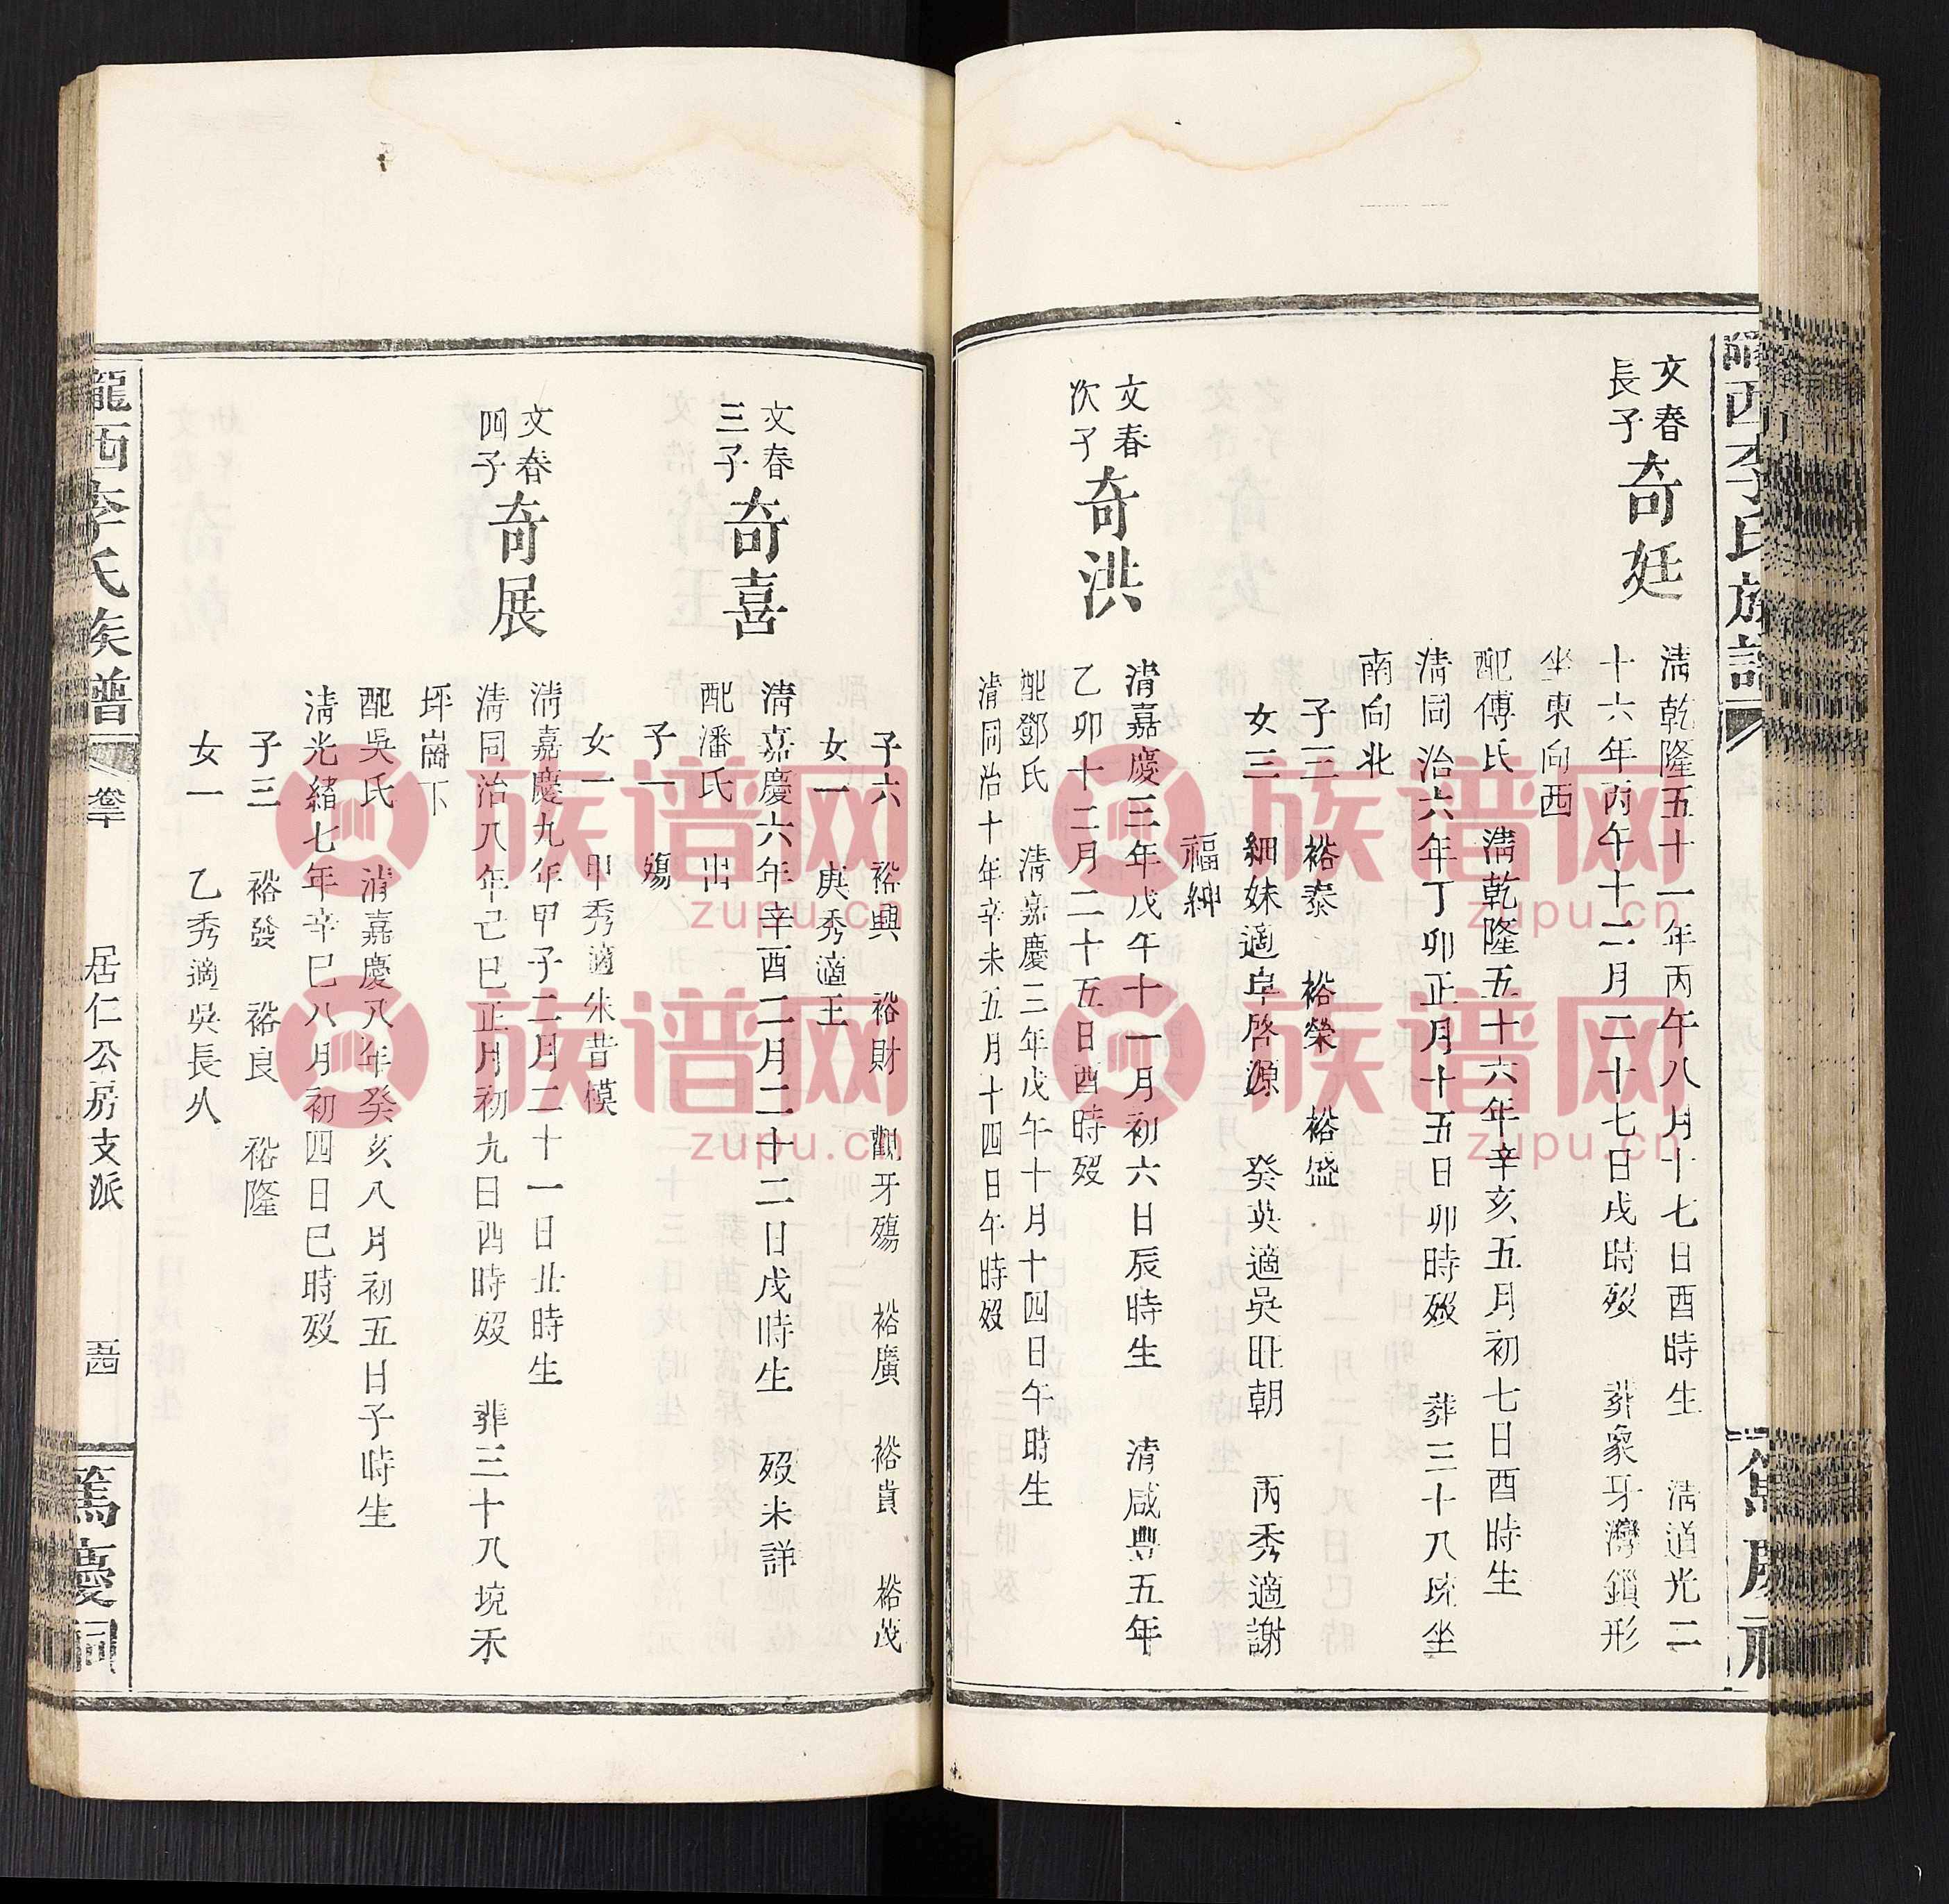 隴西李氏族譜
篤慶祠
文春
長子
奇廷
清乾隆五十一年丙午八月十七日酉時生 清道光二
十六年丙午十二月二十七日戌時歿 葬象牙灣鎖形
坐東向西
配傅氏 清乾隆五十六年辛亥五月初七日酉時生
清同治六年丁卯正月十五日卯時歿 葬三十八坑坐
南向北
子三 裕泰 裕榮 裕盛
女三 細妹適卓啓源 癸英適吳旺朝 丙秀適謝
福紳
文春
次子
奇洪
清嘉慶三年戊午十一月初六日辰時生 清咸豐五年
乙卯十二月二十五日酉時歿
配鄧氏 清嘉慶三年戊午十月十四日午時生
清同治十年辛未五月十四日午時歿
子六 裕興 裕財 觀牙殤 裕廣 裕貴 裕茂
女一 庚秀適王
文春
三子
奇喜
清嘉慶六年辛酉二月二十二日戌時生 歿未詳
配潘氏 出
子一 殤
女一 甲秀適朱昔模
文春
四子
奇展
清嘉慶九年甲子二月二十一日丑時生
清同治八年己巳正月初九日酉時歿 葬三十八境禾
坪崗下
配吳氏 清嘉慶八年癸亥八月初五日子時生
清光緒七年辛巳八月初四日巳時歿
子三 裕發 裕良 裕隆
女一 乙秀適吳長久
隴西李氏族譜
居仁公房支派
篤慶祠
族谱网
zupu.cn
族谱网
zupu.cn
族谱网
zupu.cn
族谱网
zupu.cn